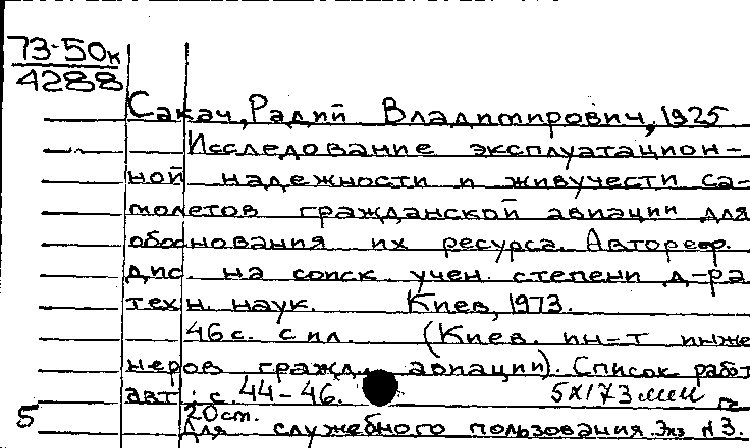 73-50к
4288
Сакач, Радий Владимирович, 1925
Исследование эксплуатацион-
ной надежности и живучести са-
молетов гражданской авиации для
обоснования их ресурса. Автореф.
дис. на соиск. учен. степени д-ра
техн. наук. Киев, 1973.
46 с. с ил. (Киев. ин-т инже
неров гражд. авиации). Список работ
авт.: с. 44-46.
5
20 см.
Для служебного пользования. Экз. №3.